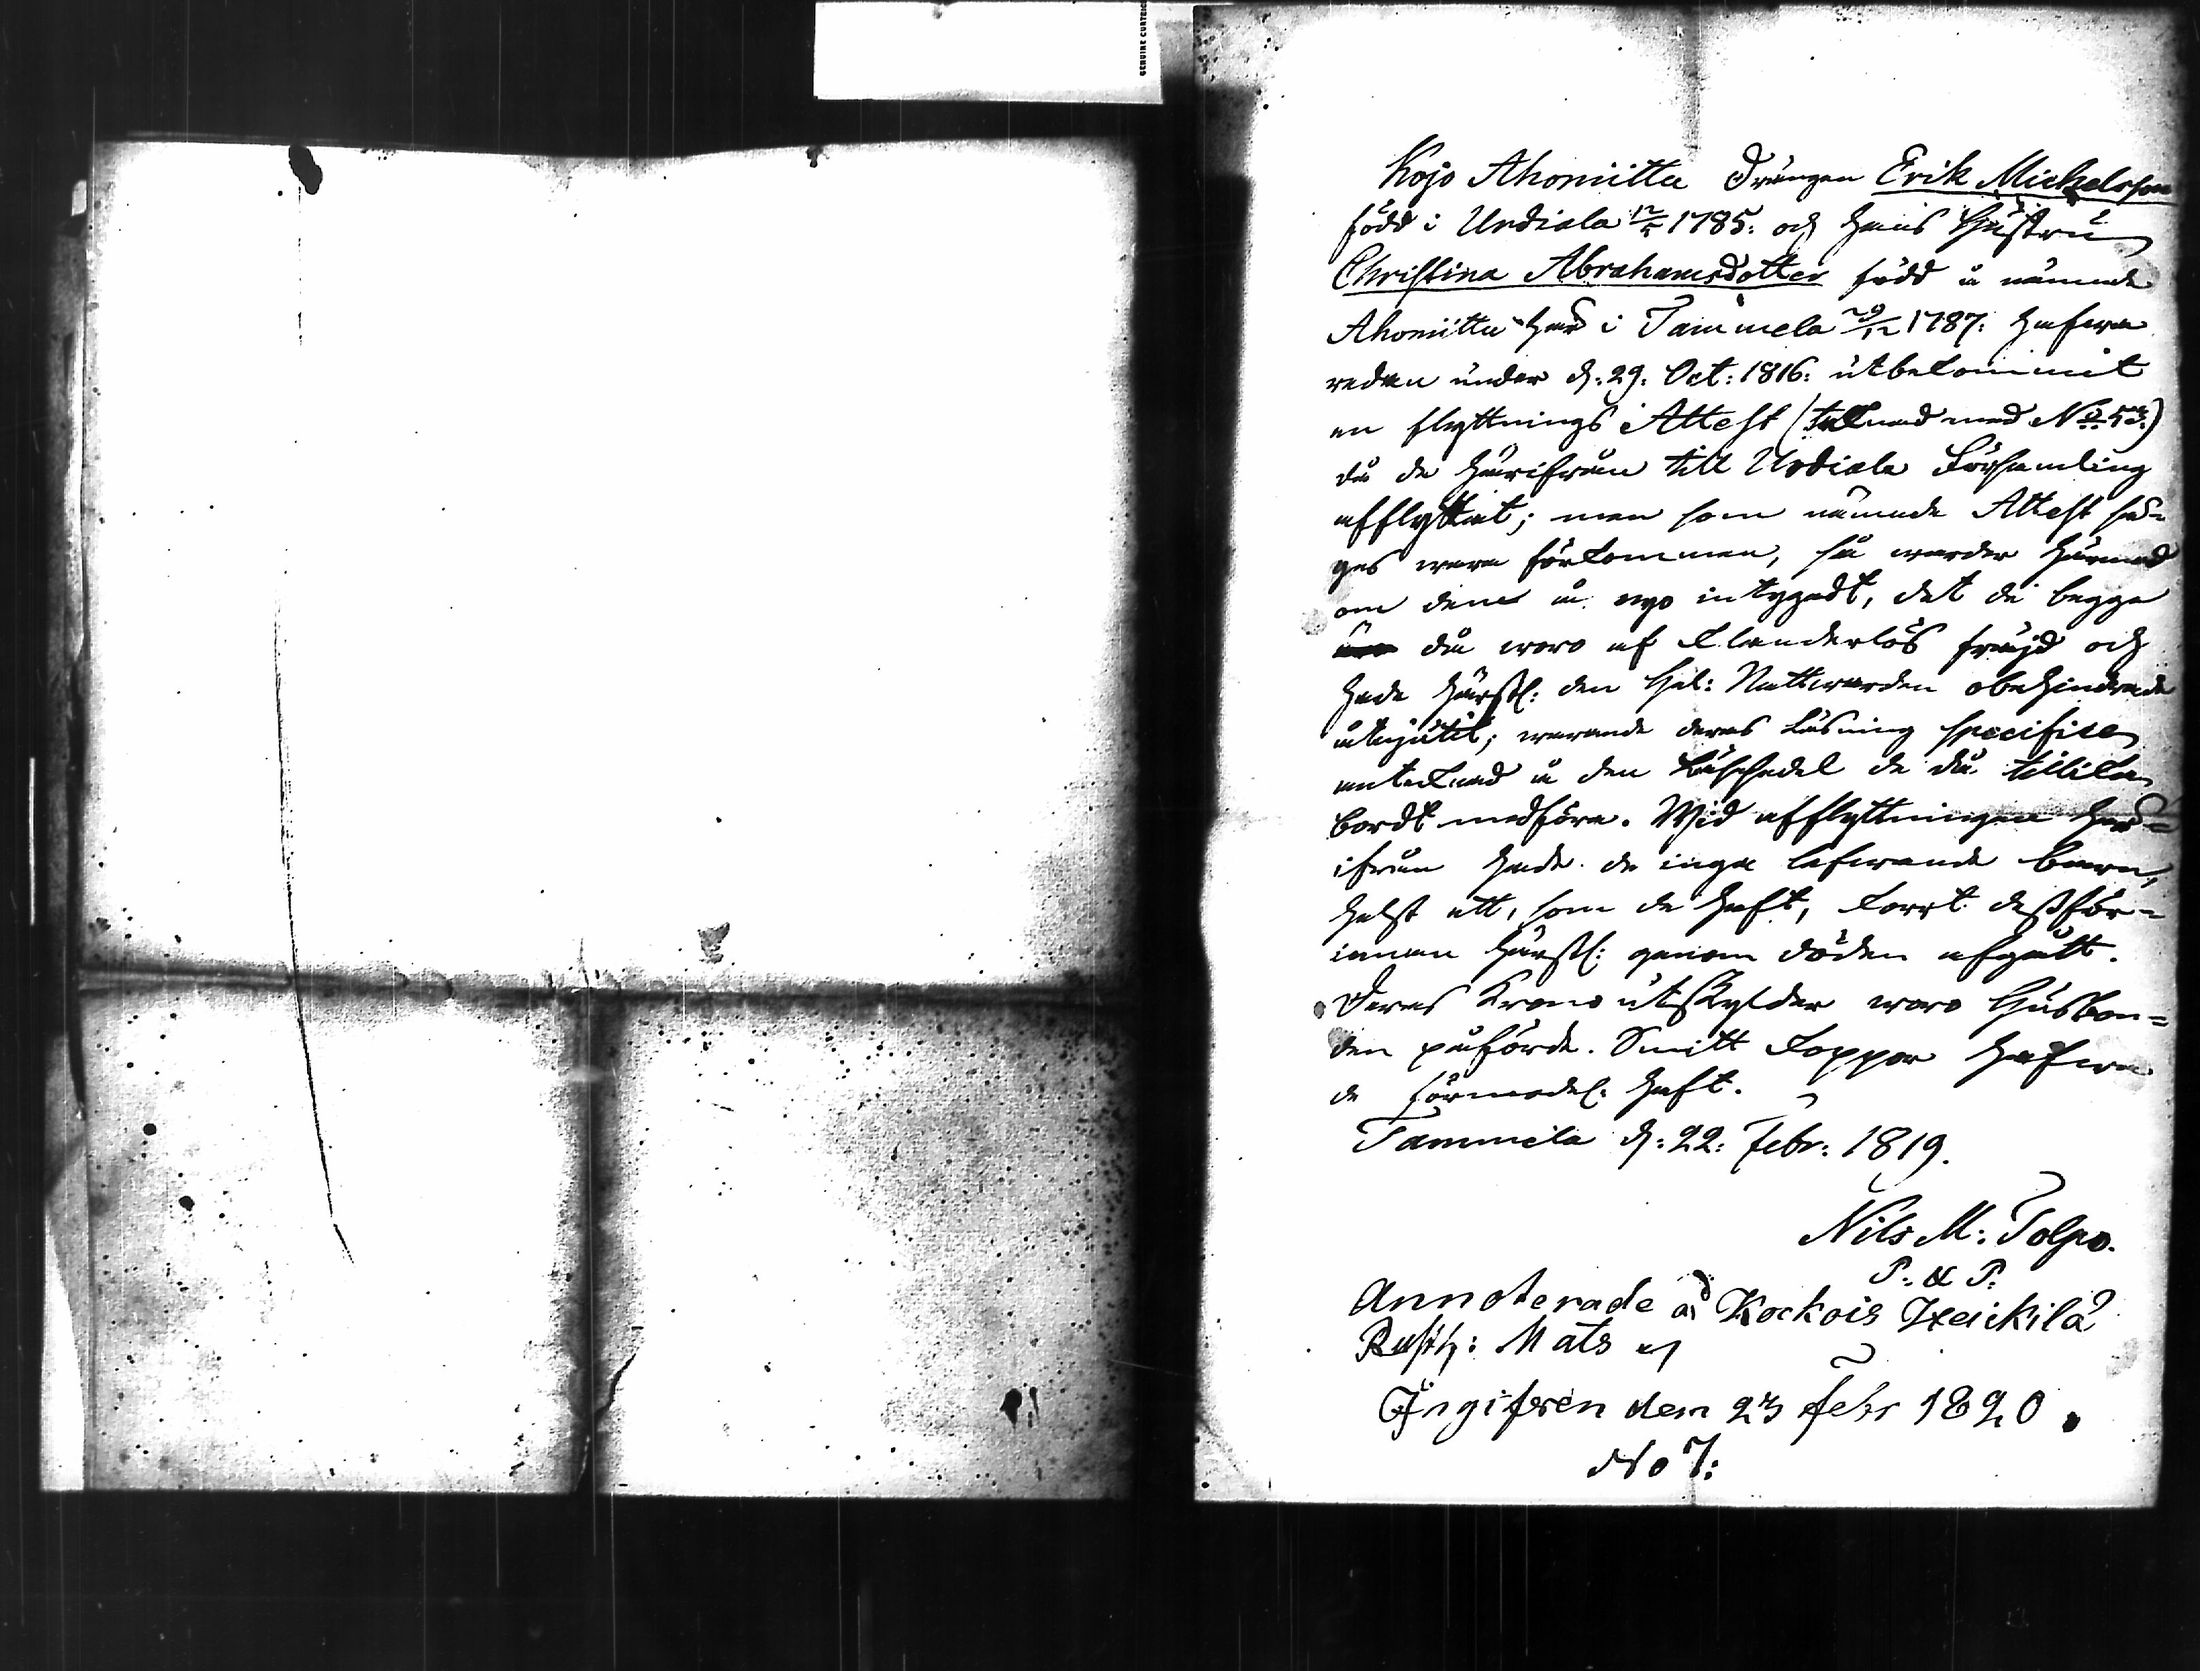 GENUINE CURTEICH
Kojo Ahomitta Drängen Erik Michelsson
född i Urdiala 12/5 1785: och hans Hustru
Christina Abrahamsdotter född å nämnde
Ahomitta här i Tammela 29/12 1787: hafwa
redan under d: 29: Oct: 1816: utbekommit
en flyttnings Attest (teknad med No 53:)
då de härifrån till Urdiala Församling
afflyttat; men som nämnde Attest sä-
ges wara förkommen, så warder härmed
om dem å nyo intygadt, det de begge
då woro af klanderlös frejd och
hade härst: den Hel: Nattwarden obehindrade
åtnjutit; warande deras Läsning specifice
anteknad å den Läsesedel de då tillika
bordt medföra. Wid afflyttningen här-
ifrån hade de inga lefwande barn,
helst ett, som de haft, kort dessför-
innan härst: genom döden afgått.
Deras Krono utskylder woro Husbon-
den påförde. Smitt koppor hafwa
de förmodel: haft.
Tammela d: 22: Febr: 1819.
Nils M: Tolpo.
P: & P:
Annoterade ad Kockois Heickilä
Mats
Ingifven dem 23 Febr 1820.
No 7: